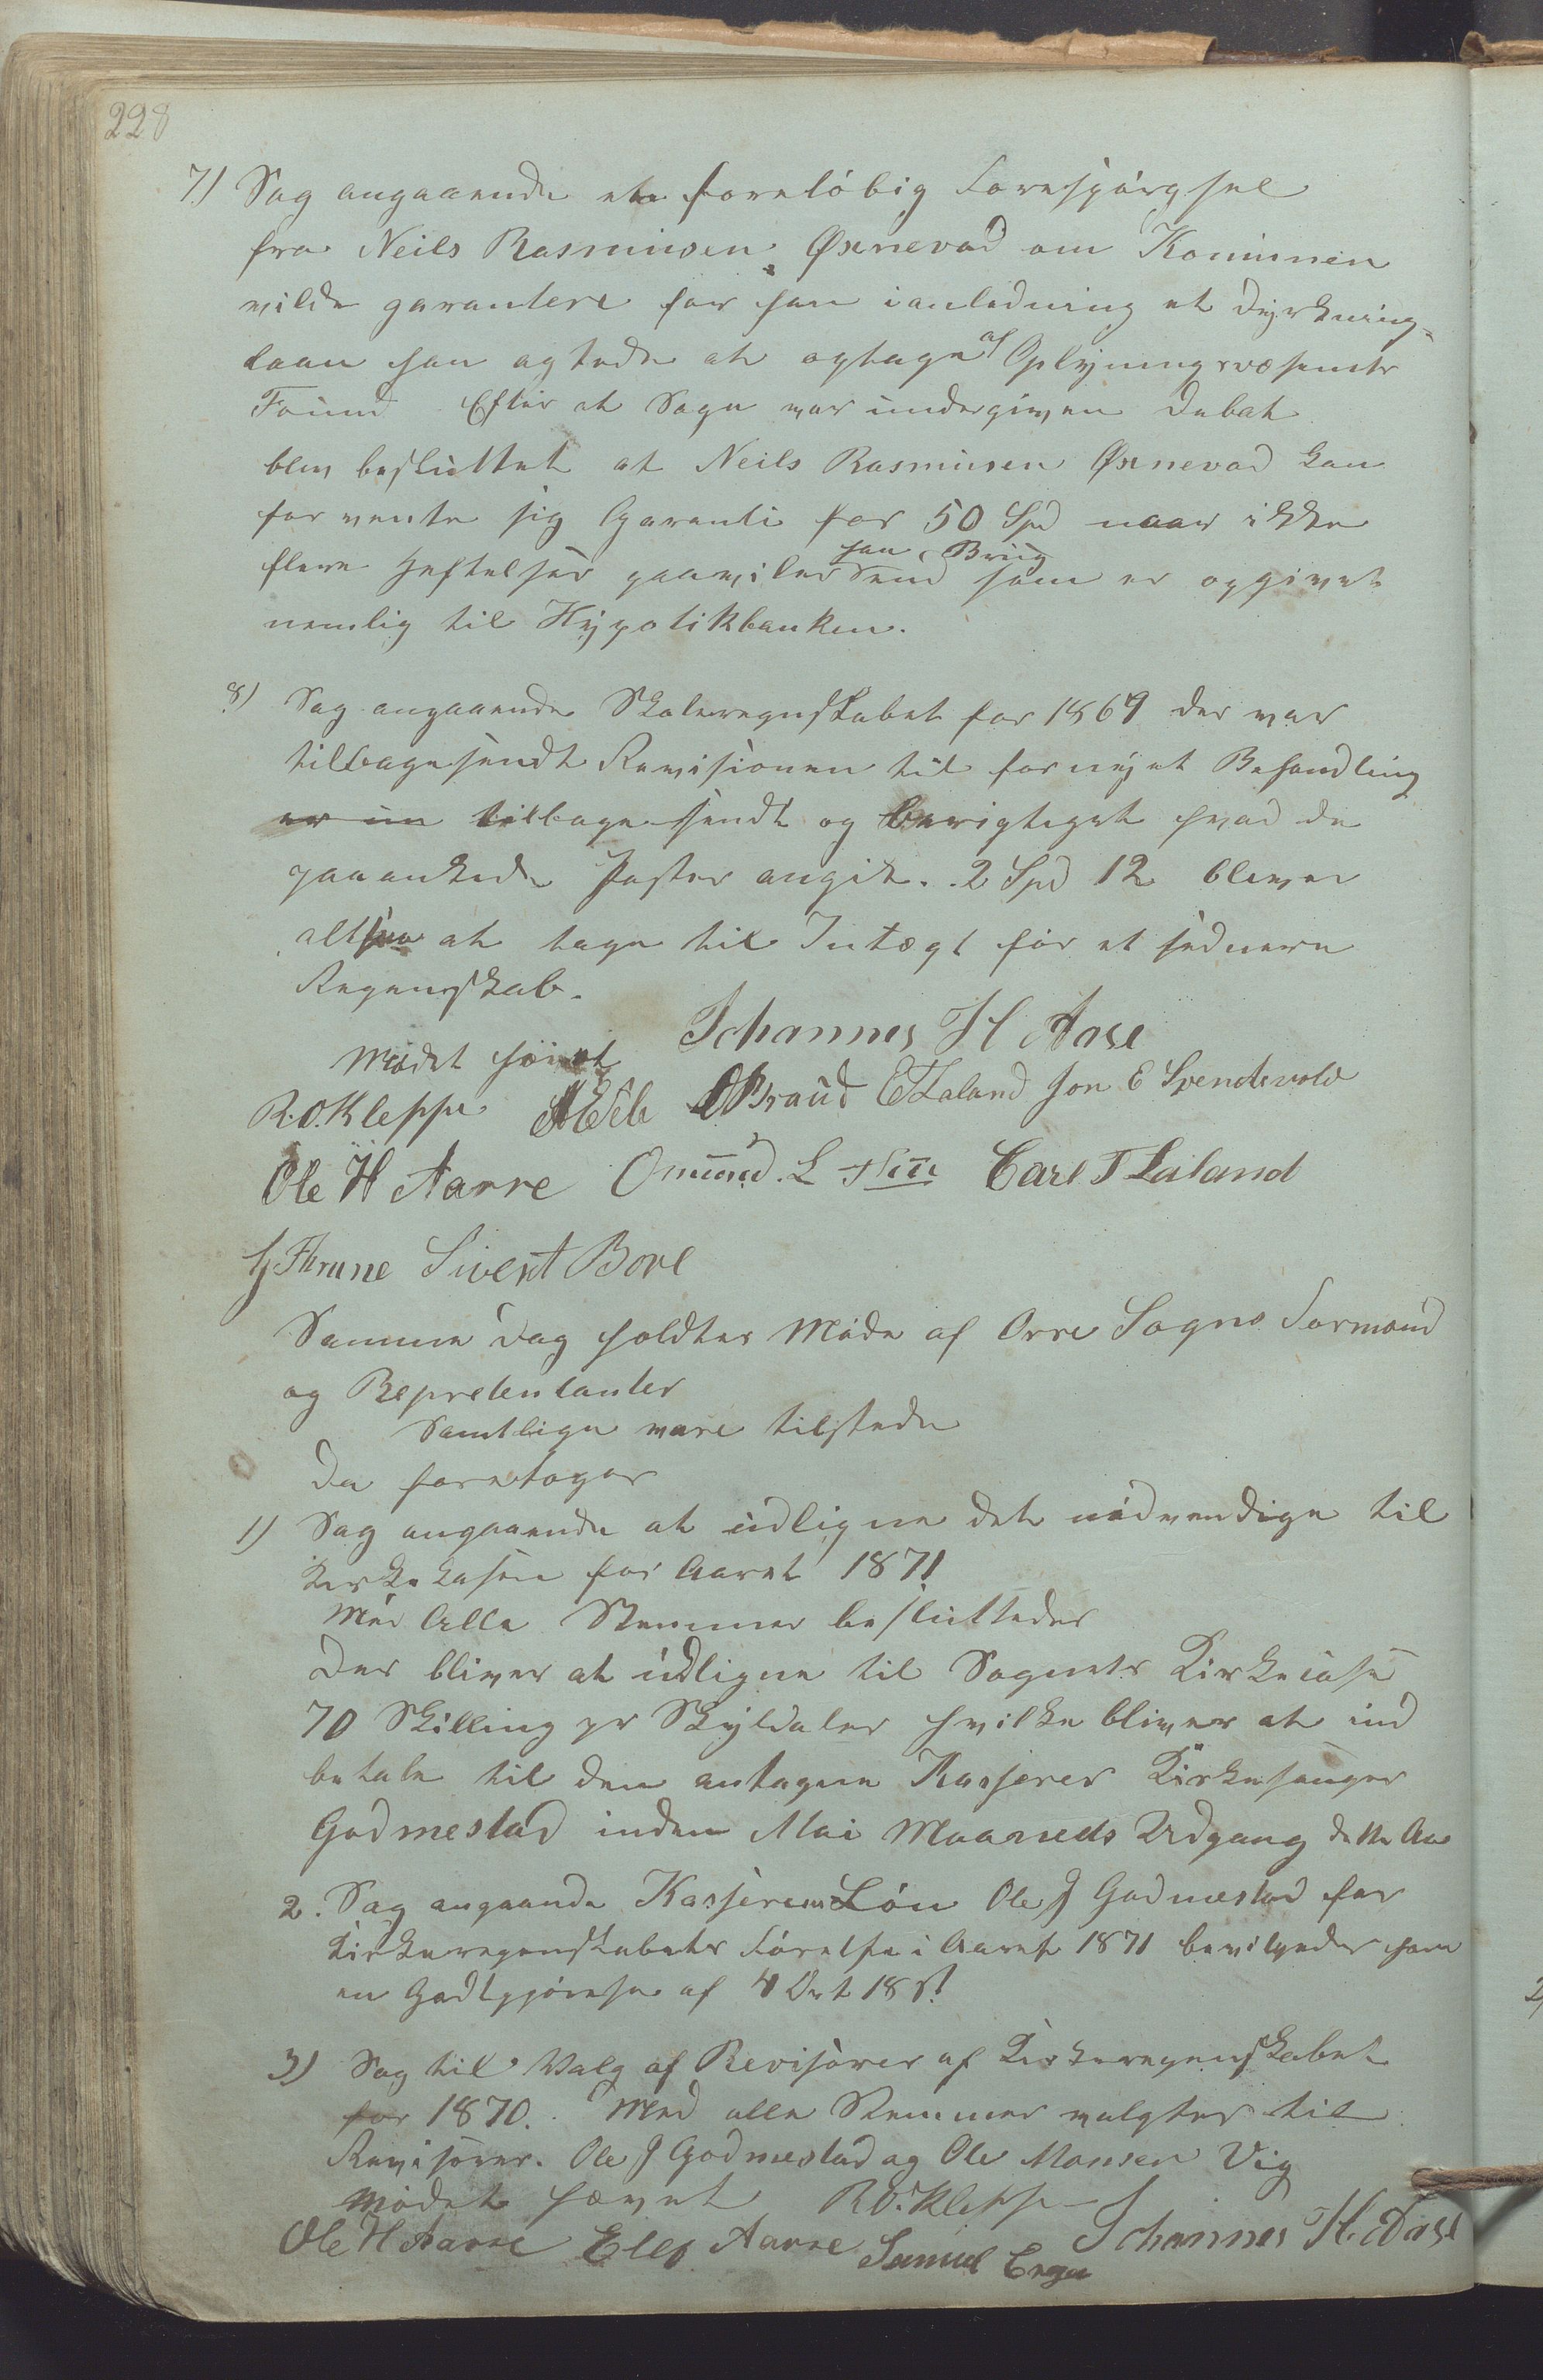 228
7) Sag angaaende en foreløbig Forespørgsel
fra Neils Rasmussen Øxnevad om Komunen
vilde garantere for han i anledning et Dyrkning-
laan han agtede at optage af Oplysningsvæsenets
Found Efter at Sagen var undergiven Debat
blev besluttet at Neils Rasmussen Øxnevad kan
forvente sig Garanti for 50 Spd naar ikke
flere Heftelser paaviler hans Brug som er opgivet
nemlig til Hypotikbanken.
8) Sag angaaende Skoleregnskabet for 1869 der var
tilbagesendt Revisionen til fornyet Behandling
er nu tilbagesendt og berigtiget hvad de
paaankede Poster angik. 2 Spd 12 bliver
altsaa at tage til Intægt for et sednere
Regenskab.
Mødet hævet Johannes H Aase
R.O.Kleppe O Braud E T Laland Jon E Svendsvold
Ole H Aarre Omund L Carl T Laland
Thrane Sivert Bore
Samme Dag holdtes Møde af Orre Sogns Formænd
og Repretentanter
Samtlige vare tilstede
Da foretoges
1) Sag angaaende at udligne det nødvendige til
Kirkekasen for Aaret 1871
Med Alle Stemmer besluttedes
Der bliver at udligne til Sognets Kirkecase
70 Skilling pr Skyldaler hvilke bliver at ind
betale til den antagne Kasserer Kirkesanger
Godmestad inden Mai Maaneds Udgang dette Aar
2. Sag angaande Kasserens Løn Ole J Godmestad for
Kirkeregenskabets Førelse i Aaret 1871 bevilgedes ham
en Godtgjørelse af 4 Ort 18 s!
3) Sag til Valg af Revisorer af Kirkeregenskabet
for 1870. Med alle Stemmer valgtes til
Revisorer. Ole J Godmestad og Ole Monsen Vig
Mødet hævet R O. Kleppe Johannes H. Aase
Ole H Aarre Ellef Aarre Samuel Erga